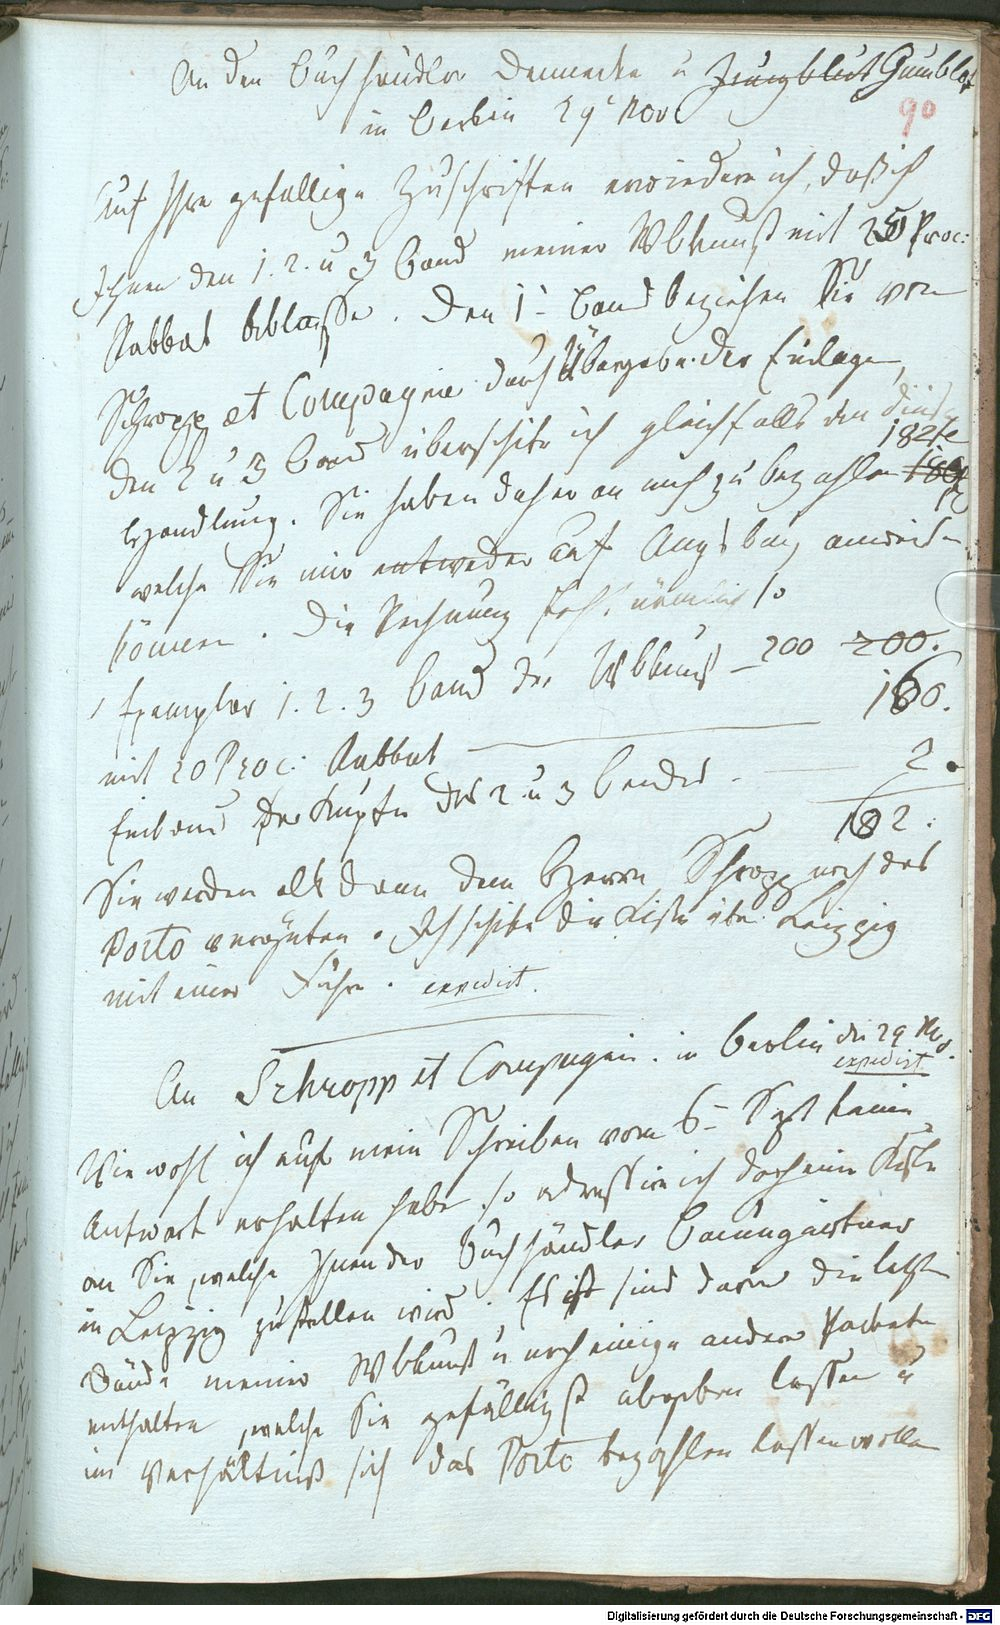 An den Buchhändler Dunneke u Jungblut Gumblot
90
in Berlin 29t Nov
Auf Ihre gefällige Zuschriften erwiedere ich, daß ich
Ihnen den 1. 2. u 3 Band meiner WbKunst mit 20 Proc:
Rabbat ablasse. Den 1t Band beziehen Sie von
Schropp et Compagnie durch Übergabe der Einlage,
den 2 u 3 Band überschike ich gleichfalls an diese
182 f
Handlung. Sie haben daher an mich zu bezahlen
welche Sie mir entweder auf Augsburg anweisen
können. Die Rechnung steht nämlich so
1 Exemplar 1. 2. 3 Band der WbKunst — 200 200.
160.
mit 20 Proc: Rabbat
Einband der Kupfer des 2 u 3 Bandes — 2.
182.
Sie werden alsdann dem Herrn Schropp noch das
Porto vergüten. Ich schike die Kiste über Leipzig
mit einer Fuhre. expedirt.
An Schropp et Compagnie. in Berlin den 29 Nov.
expedirt
Wie wohl ich auf mein Schreiben vom 6t Sept keine
Antwort erhalten habe so adressire ich doch eine Kiste
an Sie, welche Ihnen der Buchhändler Baumgärtner
in Leipzig zustellen wird. Es ist sind darin die letzten
Bände meiner WbKunst u noch einige andere Pakete
enthalten, welche Sie gefälligst abgeben lassen u
im Verhältniß sich das Porto bezahlen lassen wollen
Digitalisierung gefördert durch die Deutsche Forschungsgemeinschaft - DFG